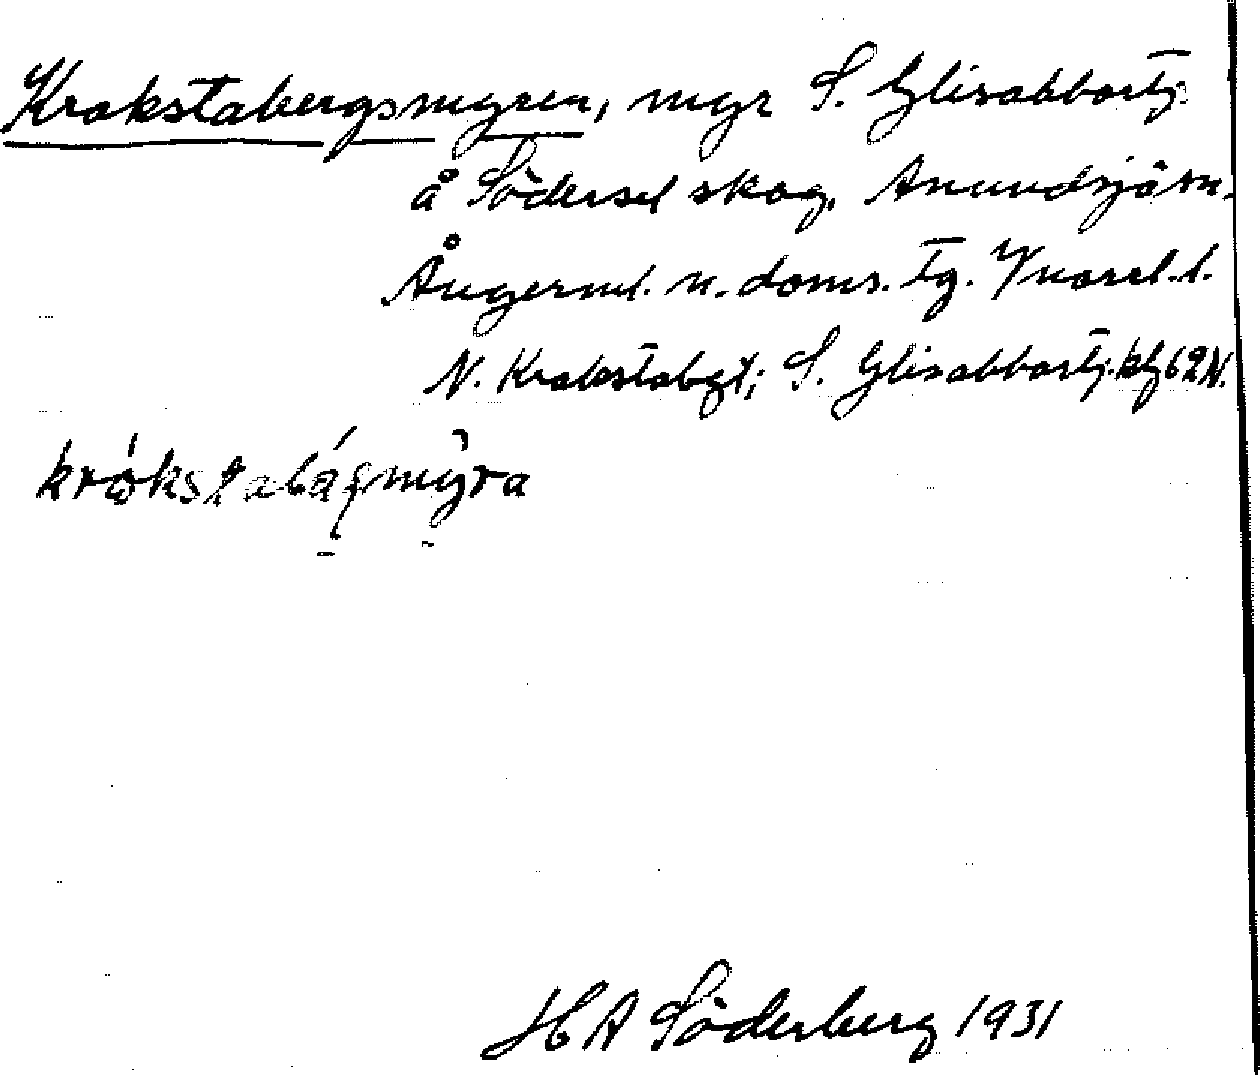 Krokstabergsmyren, myr S. Glisabbortj.
å Södersel skog, Anundsjö sn.
Ångerml. n. doms. tg. Ynorel. l.
N. Krokstabgt; S. Glisabbortj. kbl 62 N.
krökstabágmýra
HA Söderberg 1931